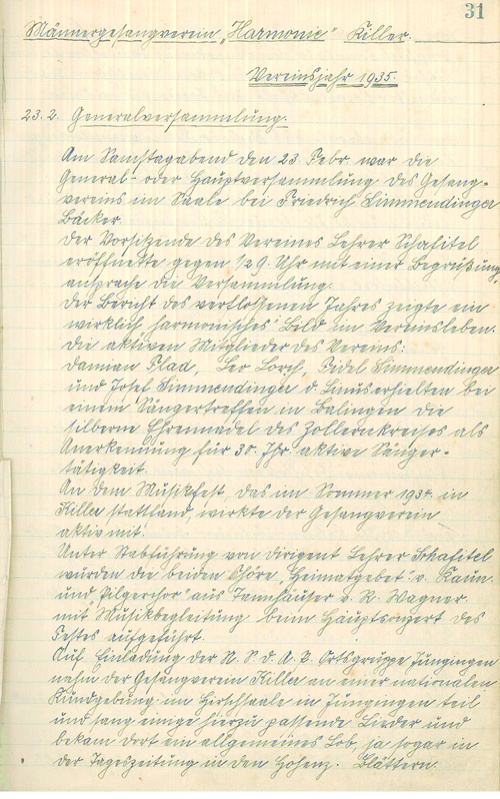 31
Männergesangverein „Harmonie" Killer.
Vereinsjahr 1935.
23.2. Generalversammlung.
Am Samstagabend den 23 Febr. war die
General- oder Hauptversammlung des Gesang-
vereins im Saale bei Friedrich Simmendinger
Bäcker.
Der Vorsitzende des Vereines Lehrer Schafitel
eröffnette gegen 1/2 9. Uhr mit einer Begrüßung-
ansprache die Versammlung.
Der Bericht des verflossenen Jahres zeigte ein
wirklich „harmonisches" Bild im Vereinsleben.
Die aktiven Mitglieder des Vereins:
Damian Flad, Leo Lorch, Fidel Simmendinger
und Josef Simmendinger d Linus erhielten bei
einem Sängertreffen in Balingen die
silberne Ehrennadel des Zollernkreises als
Anerkennung für 30. Jhr. aktive Sänger-
tätigkeit.
An dem Musikfest, das im Sommer 1934. in
Killer stattfand, wirkte der Gesangverein
aktiv mit.
Unter Stabführung von Dirigent Lehrer Schafitel
wurden die beiden Chöre, „Heimatgebet" v.
und „Pilgerchor" aus Tannhäuser v. R. Wagner.
mit Musikbegleitung beim Hauptkonzert des
Festes aufgeführt.
Auf Einladung der N. S. d. A. P. Ortsgruppe Jungingen
nahm der Gesangverein Killer an einer nationalen
Kundgebung im Hirschsaale in Jungingen teil
und sang einige hierzu passende Lieder und
bekam dort ein allgemeines Lob, ja sogar in
der Tageszeitung in den Hohenz. Blättern.